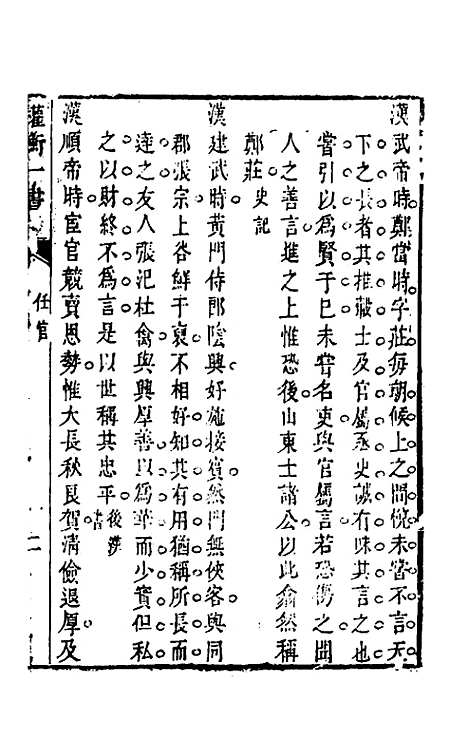 漢武帝時鄭當時字莊每朝候上之問倪未嘗不言天
下之長者其推轂士及官屬丞史誠有味其言之也
嘗引以爲賢于巳未嘗名吏與官屬言若恐傷之聞
人之善言進之上惟恐後山東士諸公以此翕然稱
鄭莊史記
漢建武時黄門侍郎陰興好施接賓然門無俠客與同
郡張宗上谷鮮于裒不相好知其有用猶稱所長而
達之友人張汜杜禽與興厚善以爲華而少實但私
之以財終不爲言是以世稱其忠平後漢書
漢順帝時宦官競賣恩勢惟大長秋良賀清儉退厚及
權衡一書
任官
二